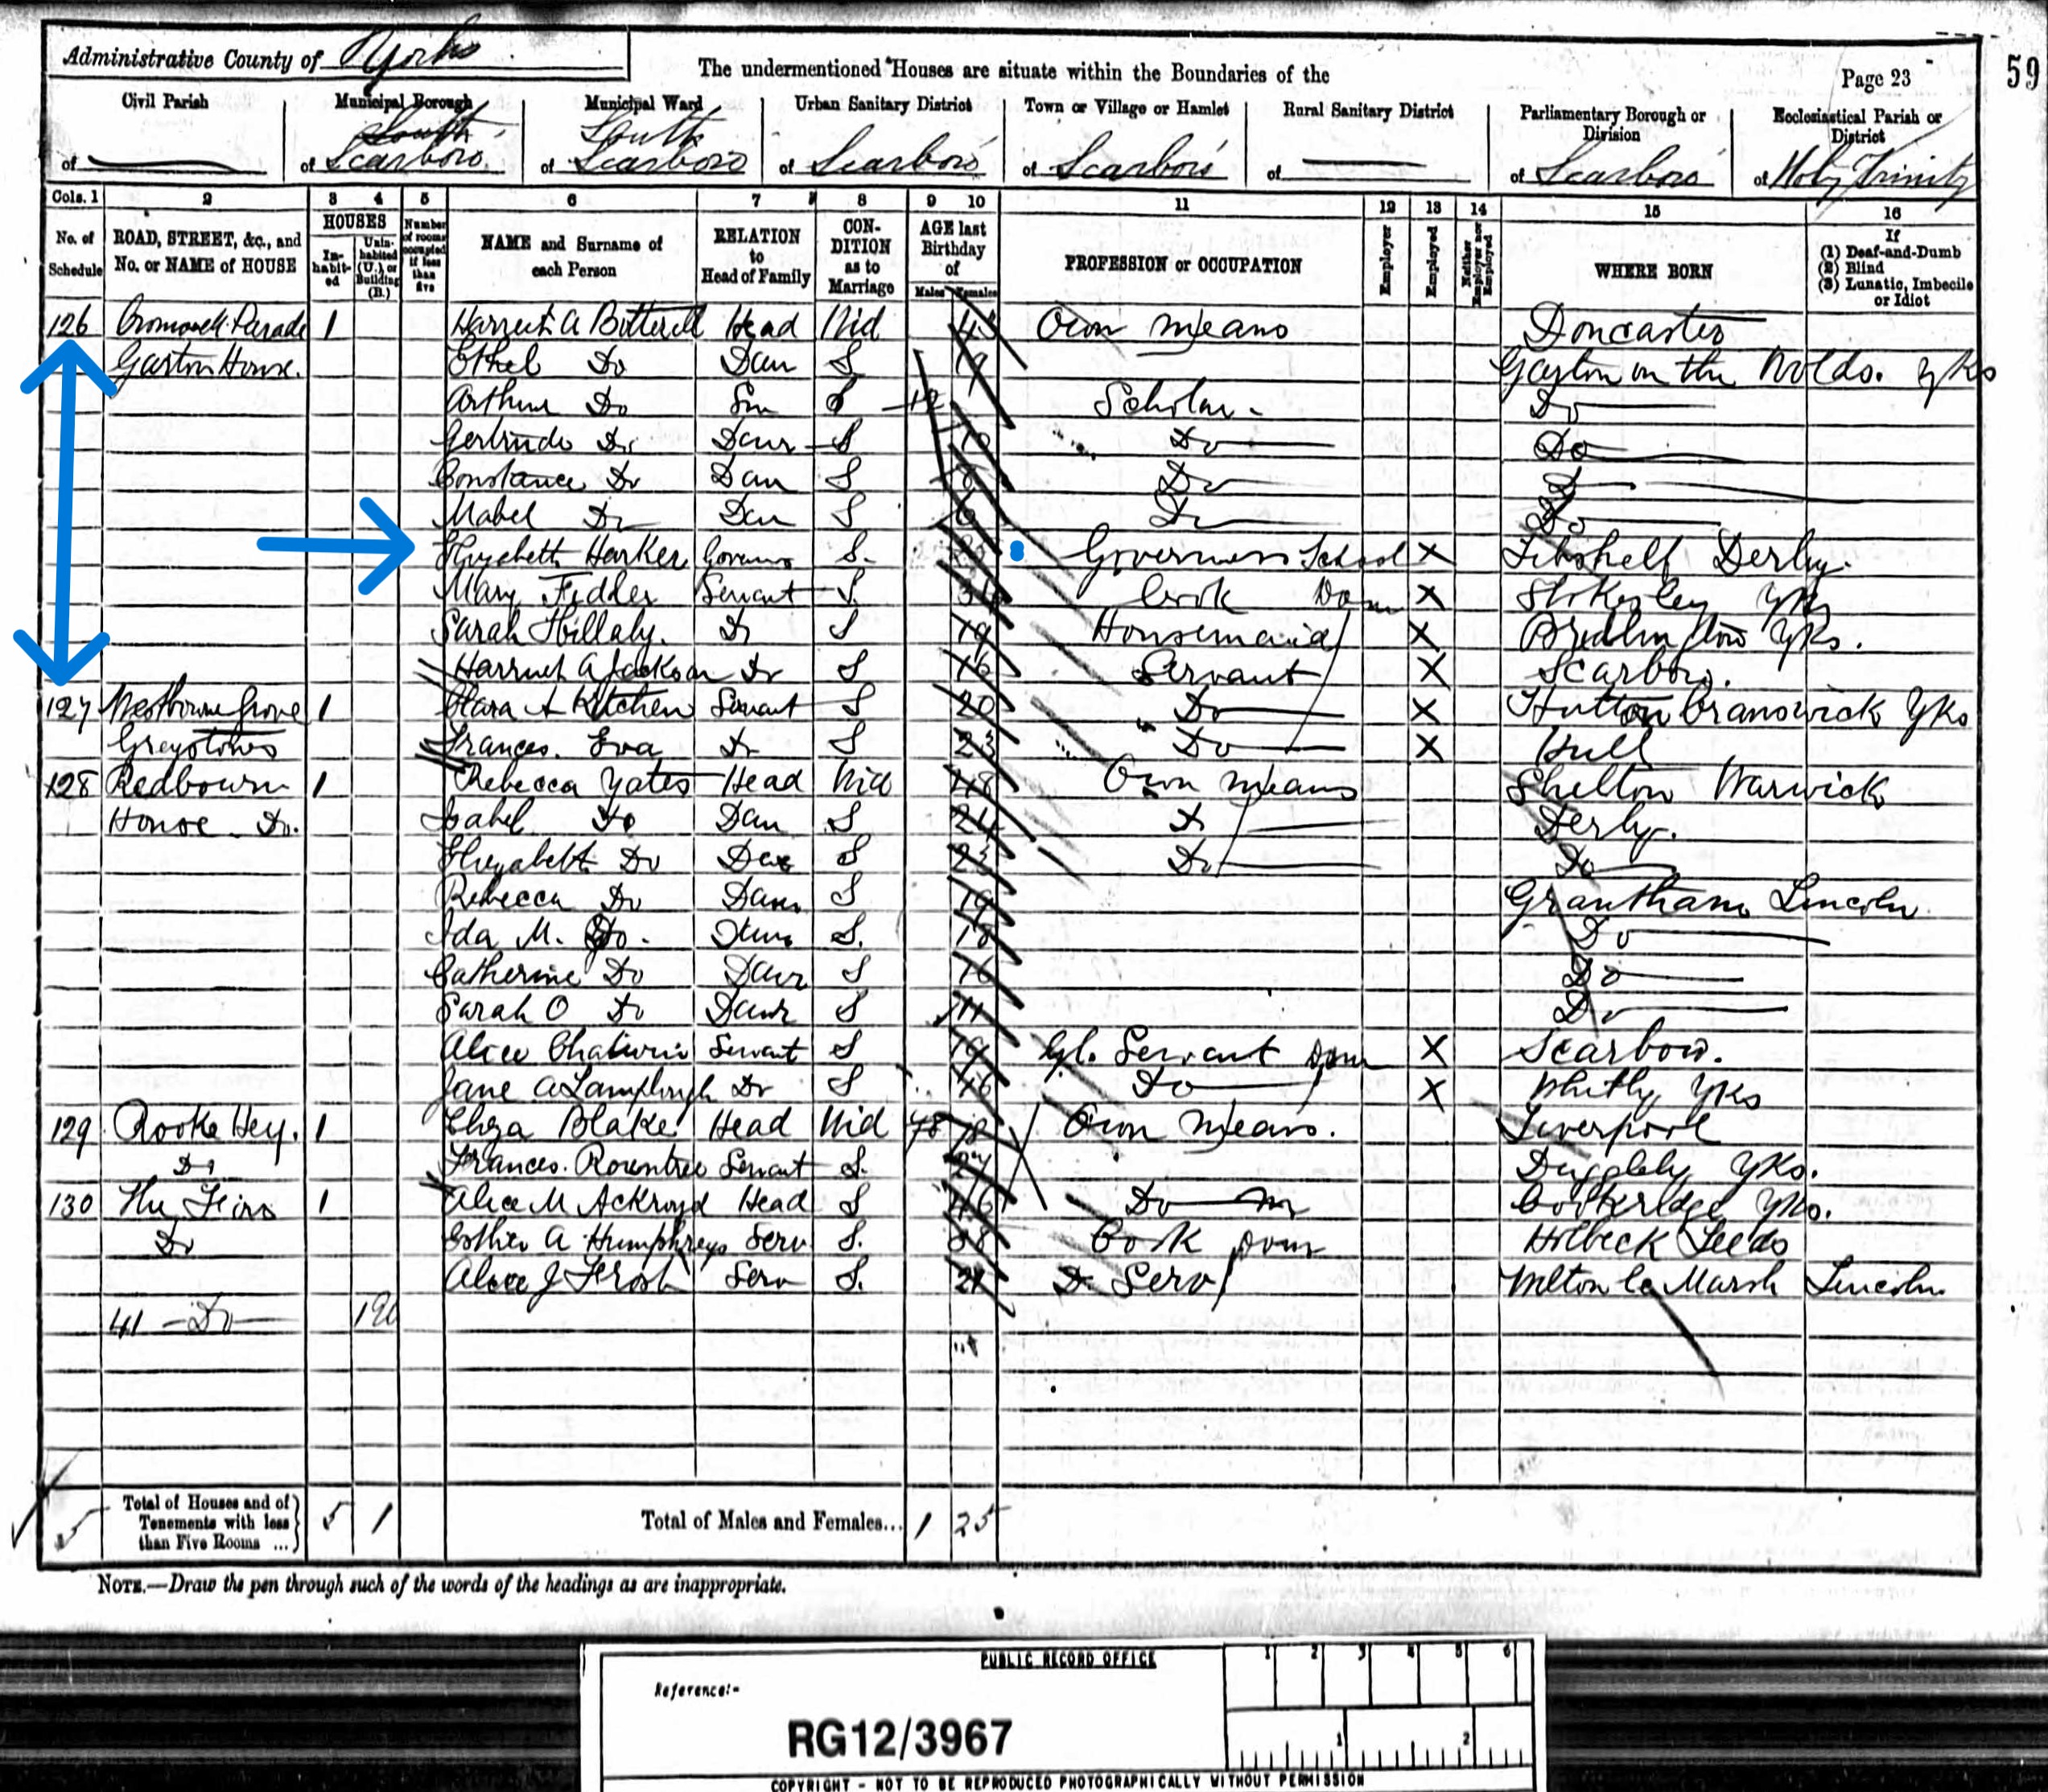 Administrative County of Yorks
The undermentioned Houses are situate within the Boundaries of the
Page 23
59
Civil Parish
of
Municipal Borough
South
of Scarboro.
Municipal Ward
South
of Scarboro
Urban Sanitary District
of Scarboro
Town or Village or Hamlet
of Scarboro
Rural Sanitary District
of
Parliamentary Borough or Division
of Scarboro
Ecclesiastical Parish or District
of Holy Trinity
Cols. 1 2 3 4 5 6 7 8 9 10 11 12 13 14 15 16
No. of Schedule
ROAD, STREET, &c., and No. or NAME of HOUSE
HOUSES
In-habit-ed
Unin-habited (U.), or Building (B.)
Number of rooms occupied if less than five
NAME and Surname of each Person
RELATION to Head of Family
CON-DITION as to Marriage
AGE last Birthday of
Males Females
PROFESSION or OCCUPATION
Employer
Employed
Neither Employer nor Employed
WHERE BORN
If
(1) Deaf-and-Dumb
(2) Blind
(3) Lunatic, Imbecile or Idiot
126 Parade 1 Harriet A Head Wid 43 Own means Doncaster
House. Ethel Do Dau S 19 on the Wolds. Yks
Arthur Do Son S 12 Scholar Do
Gertrude Do Daur S 10 Do Do
Constance Do Dau S 8 Do Do
Mabel Do Dau S 6 Do Do
Elizabeth Harker Governess S. Governess School X Tibshelf Derby.
Mary Fidler Servant S. Cook Dom X Stokesley Yks
Sarah Hillaby. Do S 19 Housemaid X Bridlington Yks.
Harriet A Jackson Do S 16 Servant X Scarboro.
127 Westbourne Grove 1 Clara A Kitchen Servant S 20 Do X Hutton Cranswick Yks
Greystones Frances. Eva Do S 23 Do X Hull
128 Redbourn 1 Rebecca Yates Head Wid 48 Own means Shelton Warwick
House Do. Isabel Do Dau S 24 Do Derby.
Elizabeth Do Dau S 23 Do Do
Rebecca Do Daur S 19 Grantham Lincoln
Ida M. Do. Daur S. 18 Do
Catherine Do Daur S 16 Do
Sarah O Do Daur S 11 Do
Alice Servant S 19 Gl. Servant Dom X Scarboro.
Jane A Lamplough Do S 16 Do X Whitby Yks
129 Rooke Hey. 1 Eliza Blake Head Wid 78 78 Own means. Liverpool
Do Frances. Rowntree Servant S. 27 Duggleby Yks.
130 The Firs 1 Alice M Ackroyd Head S 46 Do Cookeridge Yks.
Do Esther A Humphreys Serv S. 38 Cook Dom Holbeck Leeds
Alice J Frost Serv S. 21 Do Serv le Marsh Lincoln
41 Do
5
Total of Houses and of Tenements with less than Five Rooms ... 5 1
Total of Males and Females... 1 25
NOTE.—Draw the pen through such of the words of the headings as are inappropriate.
PUBLIC RECORD OFFICE
Reference:-
RG12/3967
1 2 3 4 5 6
1 2
COPYRIGHT - NOT TO BE REPRODUCED PHOTOGRAPHICALLY WITHOUT PERMISSION